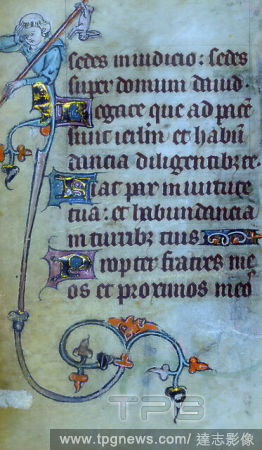 sedes in iudicio: sedes
super domum dauid.
Rogate que ad pacē
sunt ierlm et habū
dancia diligentibz te.
Fiat pax in uirtute
tua: et habundancia
in turribz tuis
Propter fratres me
os et proximos meos
TPG
www.tpgnews.com/ 達志影像